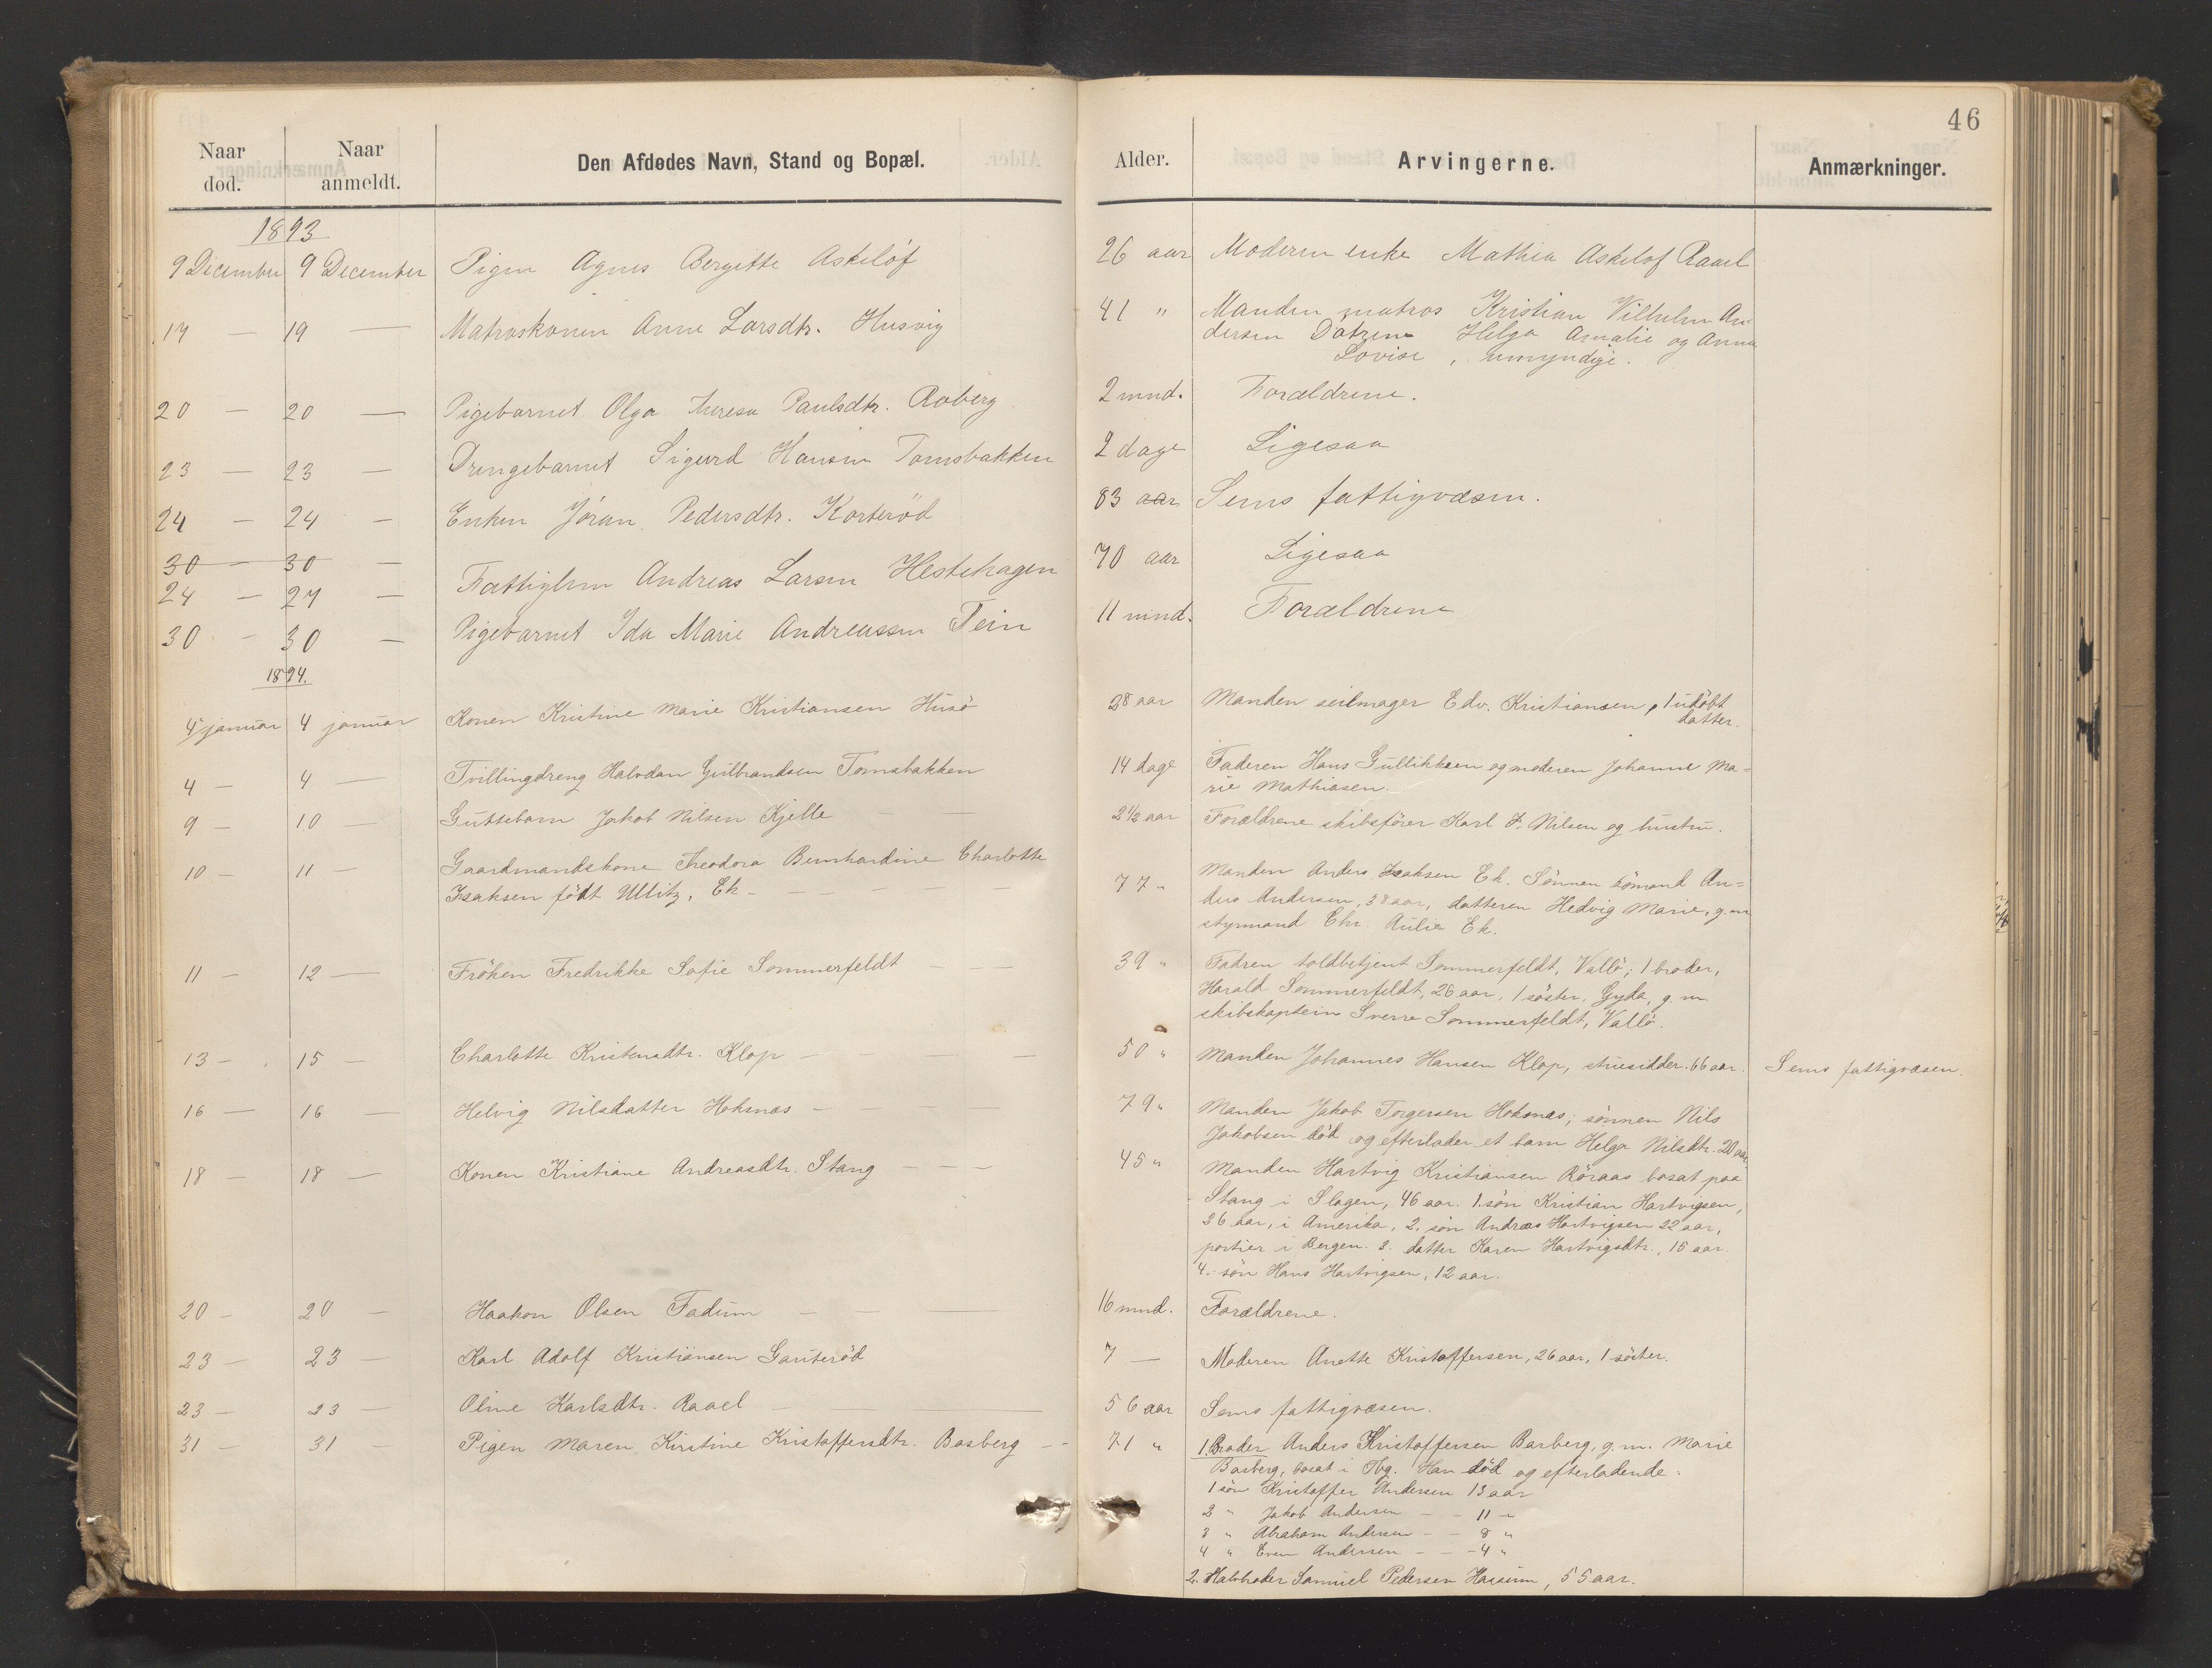 46
Naar død. Naar anmeldt. Den Afdødes Navn, Stand og Bopæl. Alder. Arvingerne. Anmærkninger.
1893
9 December 9 December Pigen Agnes Bergitte Askilöf 26 aar Moderen enke Mathea Askilof Raael
17 — 19 — Matroskonen Anne Larsdtr. Husvig 41 " Manden matros Kristian Vilhelm An-
dersen Døtrene Helga Amalie og Anna
Lovise, umyndige.
20 — 20 — Pigebarnet Olga Theresa Paulsdtr. Roberg 2 mnd. Forældrene.
23 — 23 — Drengebarnet Sigurd Hansen Tomsbakken 2 dage Ligesaa
24 — 24 — Enken Jøran Pedersdtr. Korterød 83 aar Sems fattigvæsen.
30 — 30 —
24 — 27 — Fattiglem Andreas Larsen Hestehagen 70 aar Ligesaa
30 — 30 — Pigebarnet Ida Marie Andreassen Tein 11 mnd. Forældrene
1894.
4 januar 4 januar Konen Kristine Marie Kristiansen Husö 38 aar Manden seilmager Edv. Kristiansen, 1 udöbt
datter.
4 — 4 — Tvillingdreng Halvdan Gulbrandsen Tomsbakken 14 dage Faderen Hans Gullikksen og moderen Johanne Ma=
rie Mathiasen.
9 — 10 — Guttebarn Jakob Nilsen Kjelle — — 2 1/2 aar Forældrene skibsförer Karl F. Nilsen og hustru.
10 — 11 — Gaardmandskone Theodora Bernhardine Charlotte
Isaksen født Ullitz, Ek — — — — — 77 " Manden Anders Isaksen Ek. Sönnen sömand An=
ders Andersen, 38 aar, datteren Hedvig Marie, g.m.
styrmand Chr. Aulie Ek.
11 — 12 — Fröken Fredrikke Sofie Sommerfeldt — — — 39 " Fadren toldbetjent Sommerfeldt, Vallö; 1 broder,
Harald Sommerfeldt, 26 aar, 1 söster, Gyda, g.m.
skibskaptein Sverre Sommerfeldt, Vallö.
13 — 15 — Charlotte Kristensdtr. Klop — — — 50 " Manden Johannes Hansen Klop, stuesidder. 66 aar. Sems fattigvæsen.
16 — 16 — Helvig Nilsdatter Hoksnæs — — — 79 " Manden Jakob Torgersen Hoksnæs; sönnen Nils
Jakobsen död og efterlader et barn Helga Nilsdtr. 20 aar.
18 — 18 — Konen Kristiane Andreasdtr. Stang — — — 45 " Manden Hartvig Kristiansen Röraas bosat paa
Stang i Slagen, 46 aar. 1. sön Kristian Hartvigsen,
26 aar, i Amerika, 2. sön Andreas Hartvigsen 22 aar,
portier i Bergen. 3. datter Karen Hartvigsdtr., 15 aar.
4. sön Hans Hartvigsen, 12 aar.
20 — 20 — Haakon Olsen Fadum — — — 16 mnd. Forældrene.
23 — 23 — Karl Adolf Kristiansen Gauteröd 7 — Moderen Anette Kristoffersen, 26 aar, 1 söster.
23 — 23 — Oline Karlsdtr. Raael — — — 56 aar Sems fattigvæsen.
31 — 31 — Pigen Maren Kirstine Kristoffersdtr. Basberg — - 71 " 1. Broder Anders Kristoffersen Basberg, g.m. Marie
Basberg, bosat i Tbg. Han död og efterladende:
1 sön Kristoffer Andersen 13 aar
2 " Jakob Andersen — — 11 "
3 " Abraham Andersen — — 8 "
4 " Even Andersen — — 4 "
2. Halvbroder Samuel Pedersen Hassum, 55 aar.